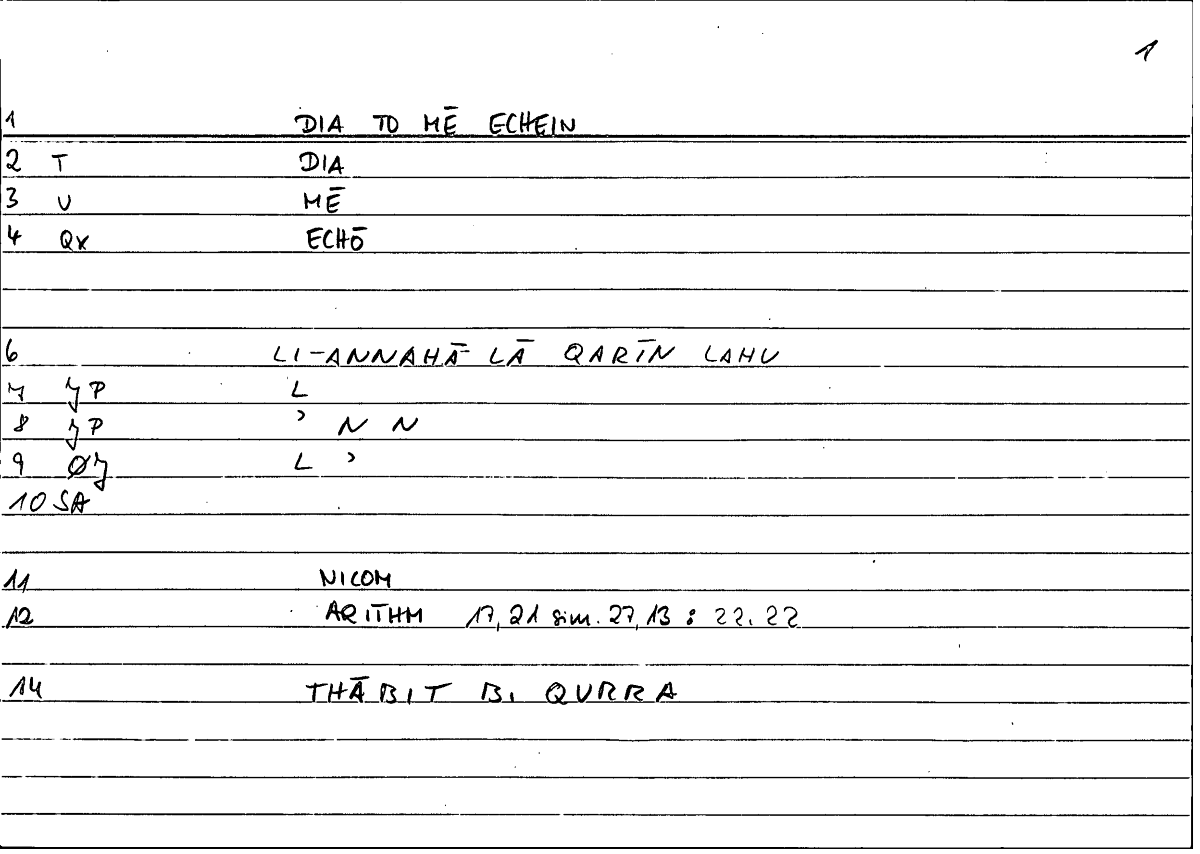 1
1 DIA TO MĒ ECHEIN
2 T DIA
3 U MĒ
4 Qx ECHŌ
6 LI-ANNAHĀ LĀ QARĪN LAHU
7 P L
8 P ʾ N N
9 L ʾ
10 SA
11 NICOM
12 ARITHM 17,21 sim. 27,13 : 22.22
14 THĀBIT B. QURRA